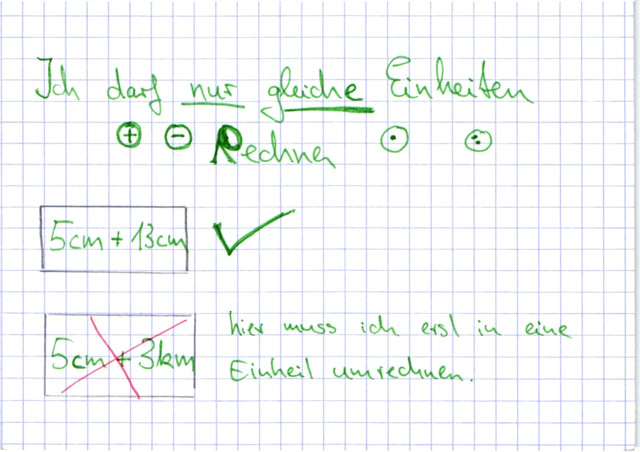 Ich darf nur gleiche Einheiten
+ - Rechnen · :
5cm + 13cm ✓
5cm + 3km hier muss ich erst in eine
Einheit umrechnen.